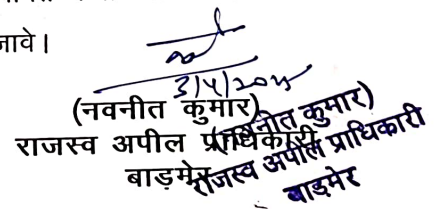 जावे।
3/4/2025
(नवनीत कुमार)
राजस्व अपील प्राधिकारी
बाड़मेर
(नवनीत कुमार)
राजस्व अपील प्राधिकारी
बाड़मेर